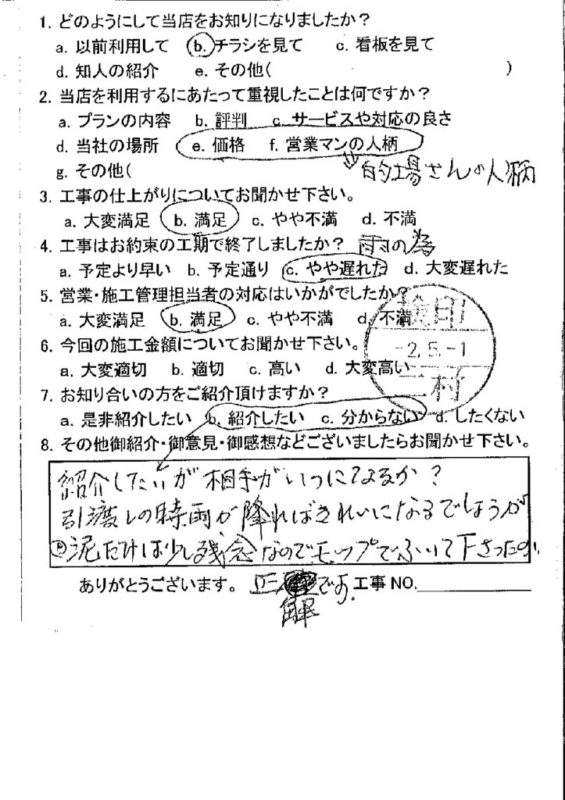 1. どのようにして当店をお知りになりましたか？
a. 以前利用して b. チラシを見て c. 看板を見て
d. 知人の紹介 e. その他( )
2. 当店を利用するにあたって重視したことは何ですか？
a. プランの内容 b. 評判 c. サービスや対応の良さ
d. 当社の場所 e. 価格 f. 営業マンの人柄
g. その他( 的場さんの人柄
3. 工事の仕上がりについてお聞かせ下さい。
a. 大変満足 b. 満足 c. やや不満 d. 不満
4. 工事はお約束の工期で終了しましたか？ 雨の為
a. 予定より早い b. 予定通り c. やや遅れた d. 大変遅れた
5. 営業・施工管理担当者の対応はいかがでしたか？
a. 大変満足 b. 満足 c. やや不満 d. 不満
検印
-2.5.-1
二村
6. 今回の施工金額についてお聞かせ下さい。
a. 大変適切 b. 適切 c. 高い d. 大変高い
7. お知り合いの方をご紹介頂けますか？
a. 是非紹介したい b. 紹介したい c. 分からない d. したくない
8. その他御紹介・御意見・御感想などございましたらお聞かせ下さい。
紹介したいが相手がいつになるか？
引渡しの時雨が降ればきれいになるでしょうが
泥だけは少し残念なのでモップでふいて下さったのが
ありがとうございます。 正解です. 工事 NO.